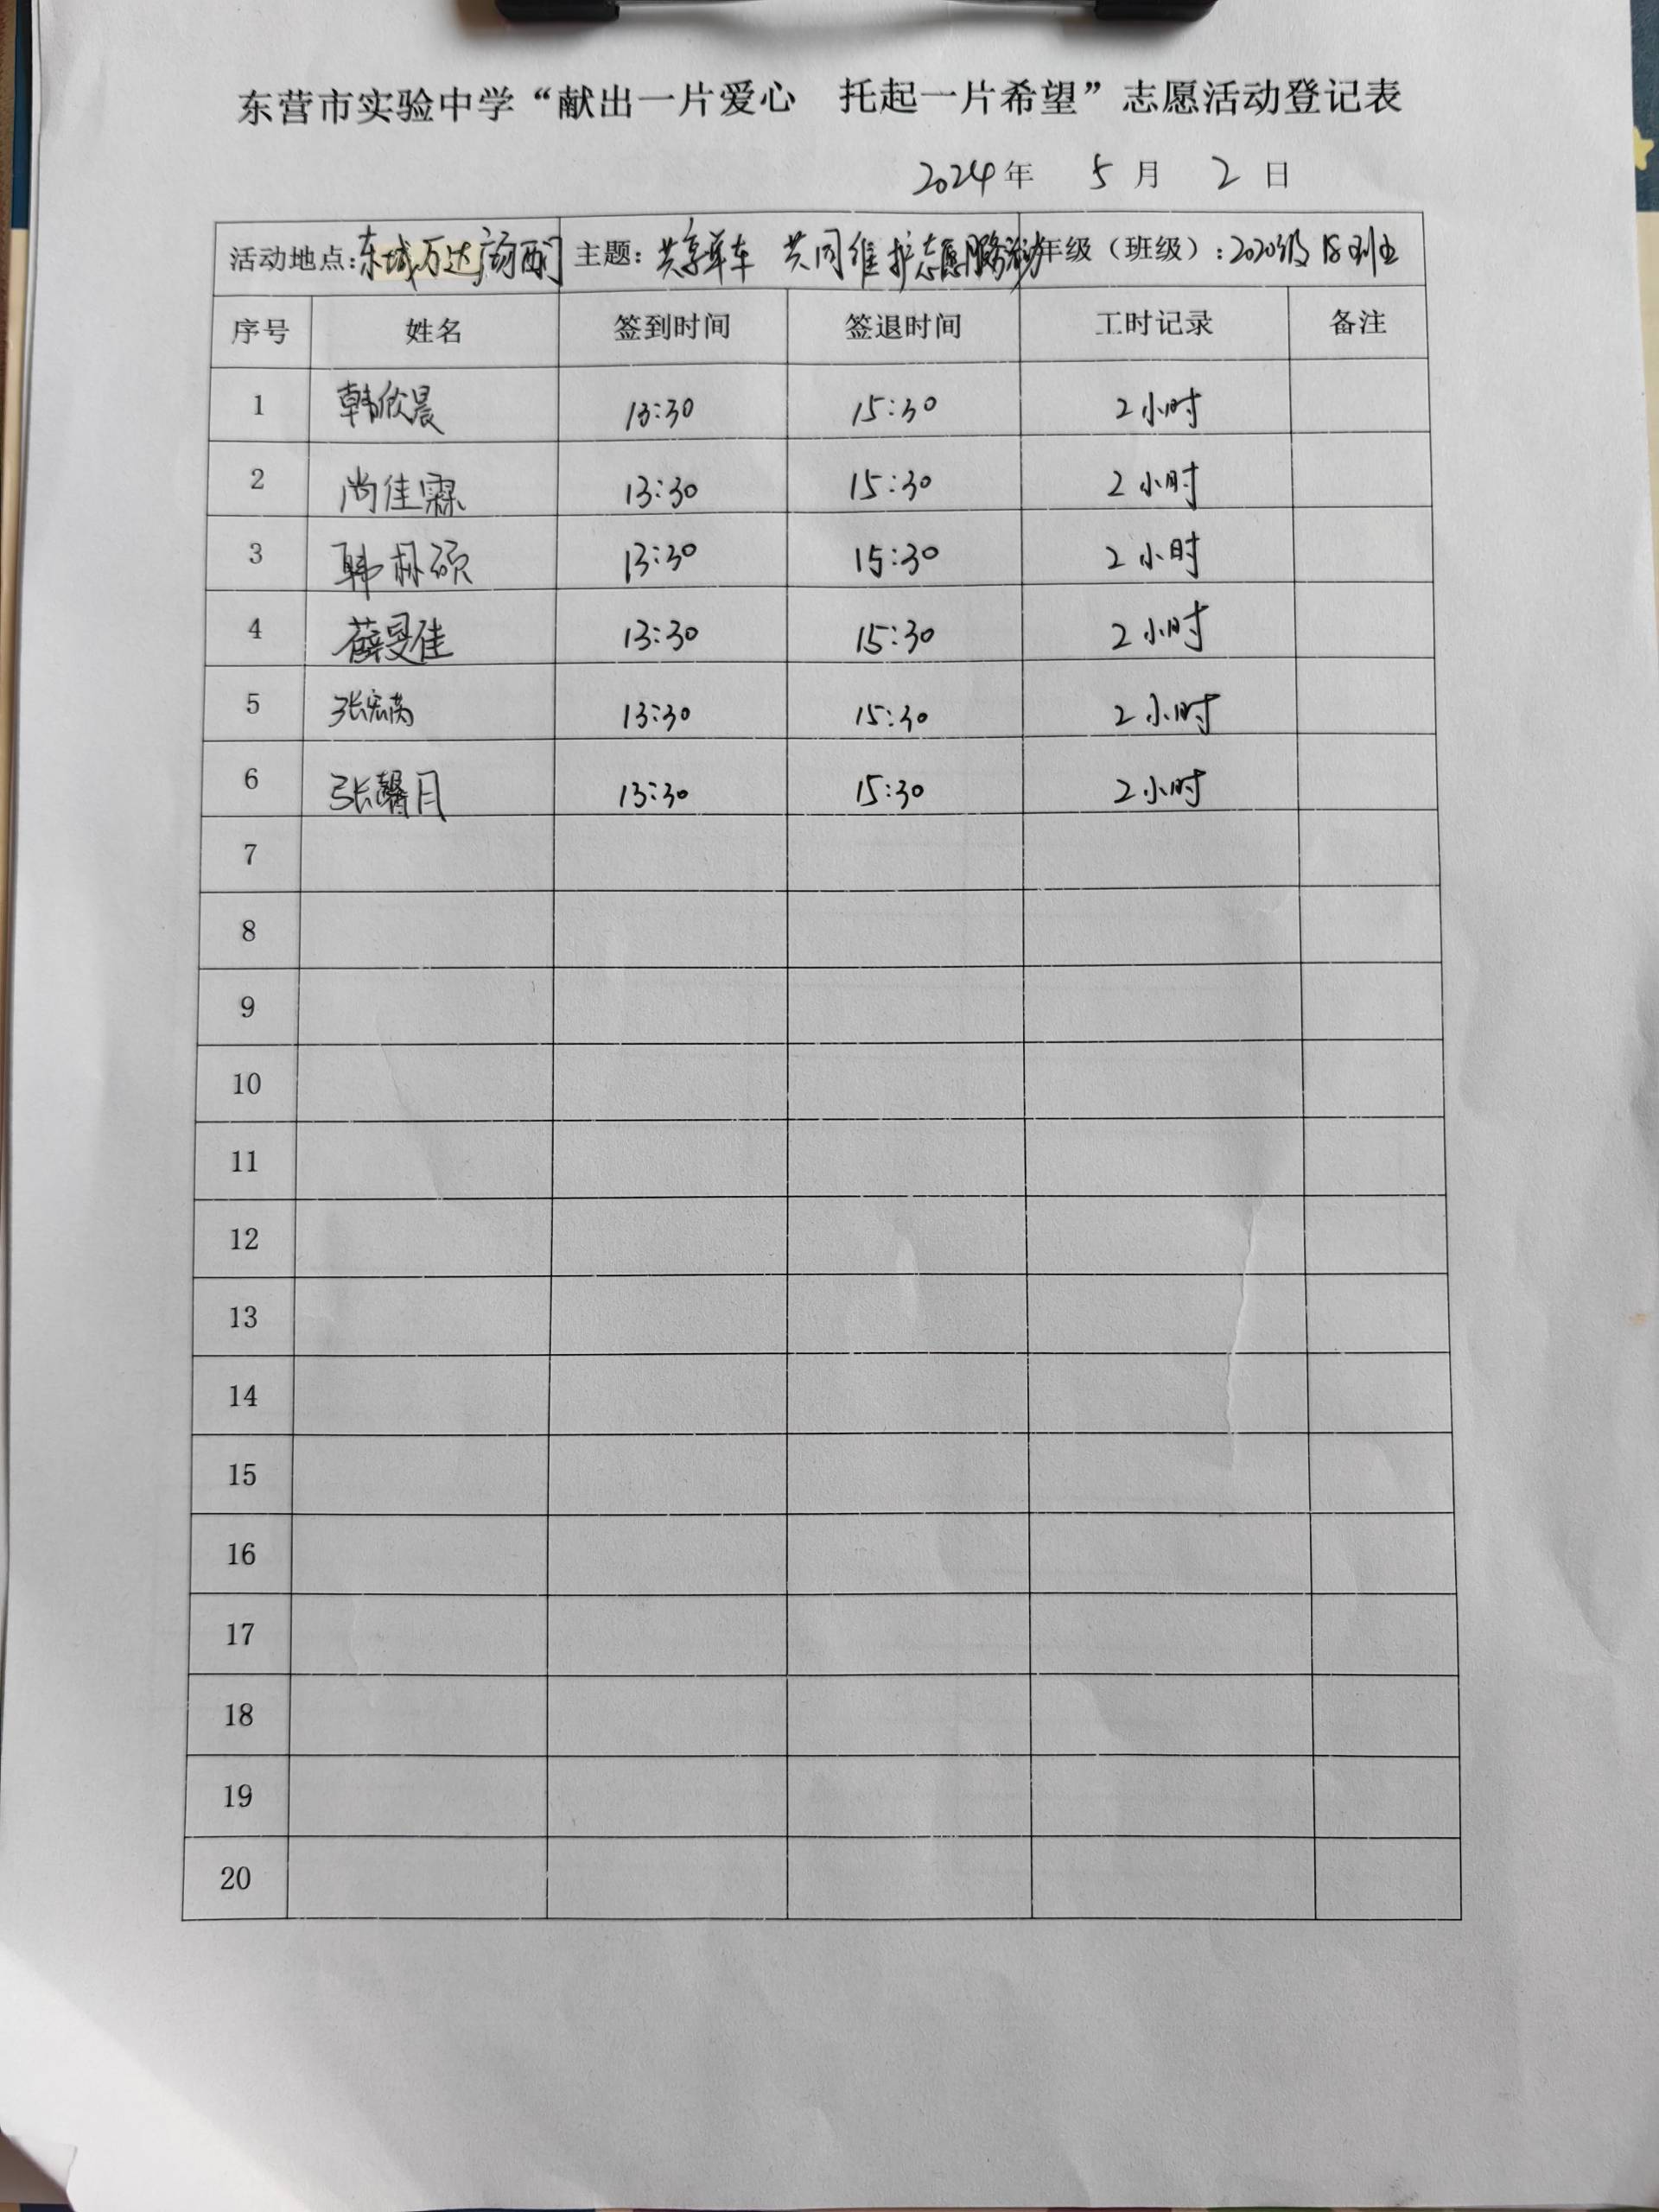 东营市实验中学“献出一片爱心 托起一片希望”志愿活动登记表
2024年 5月 2日
活动地点:东城万达广场西门 主题:共享单车 共同维护志愿服务活动 年级（班级）:2020级18班
序号 姓名 签到时间 签退时间 工时记录 备注
1 韩欣晨 13:30 15:30 2小时
2 尚佳霖 13:30 15:30 2小时
3 韩 硕 13:30 15:30 2小时
4 薛旻佳 13:30 15:30 2小时
5 张宏 13:30 15:30 2小时
6 张馨月 13:30 15:30 2小时
7
8
9
10
11
12
13
14
15
16
17
18
19
20